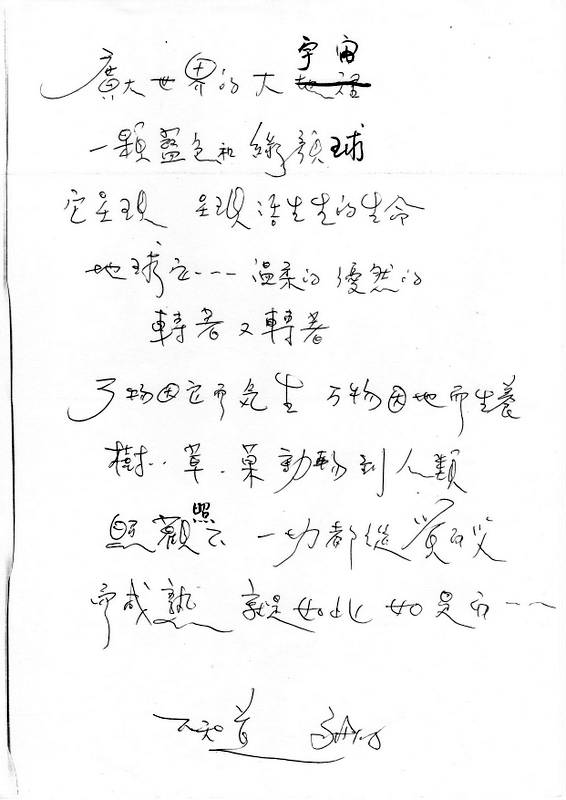 廣大世界的大宇宙
一顆藍色和綠顏球
它呈現 呈現活生生的生命
地球它---溫柔的優然的
轉著又轉著
万物因它而気生 万物因地而生養
樹..草.菓動物到人類
照觀照 一切都從
而成熟 就是如此如是而--
不知道